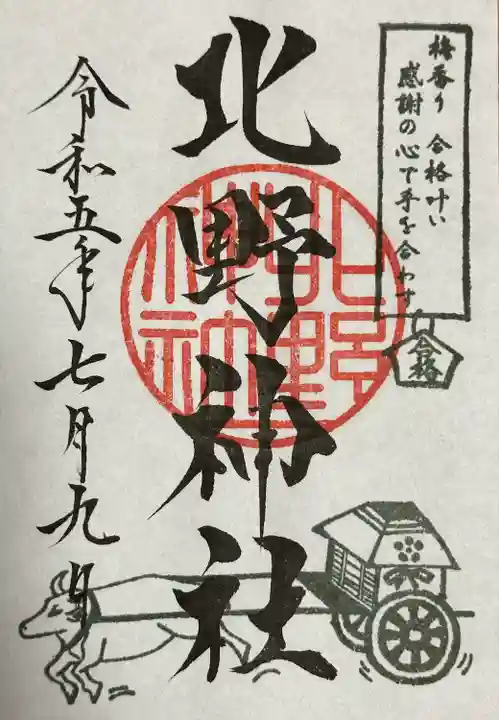 梅香り 合格叶い
感謝の心で手を合わす
合格
北野神社
北野神社
令和五年七月九日